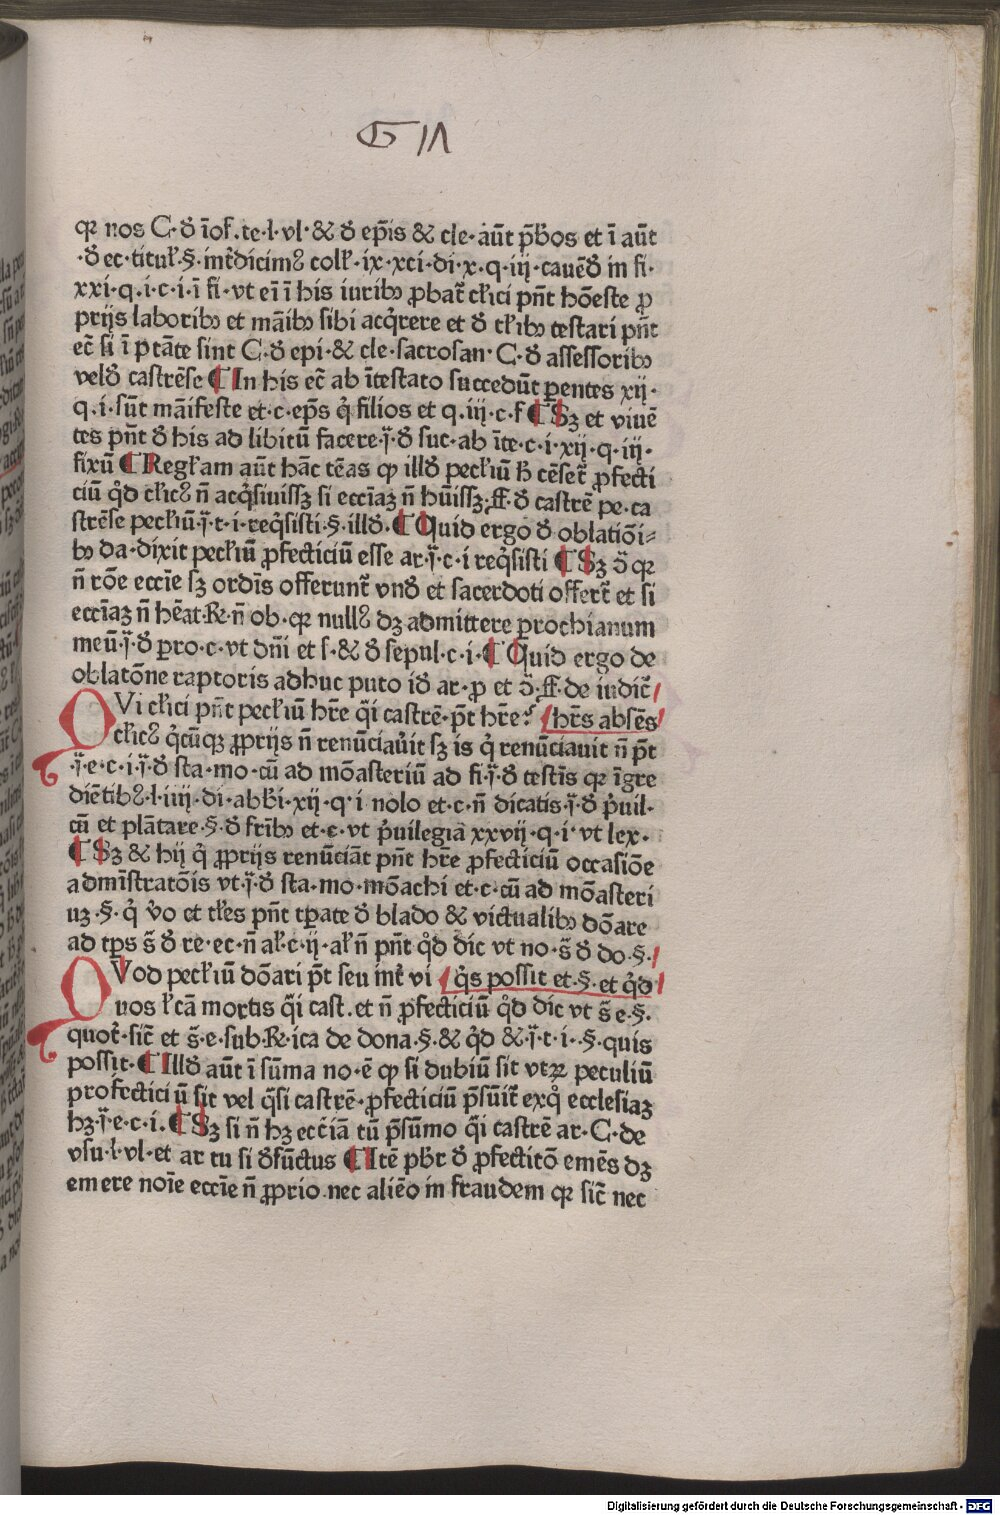 qꝛ nos C· ꝺ̄ īoſ̄.te·l·vl·& ꝺ̄ ep̄is & cle·aūt p̄b̄os et ī aūt
·ꝺ̄ ec·titul̄·§·mr̄dicimꝰ coll̄·ix·xci·di·x·q·iij·cauēꝺ̄ in fi·
xxi·q·i·c·i·ī fi·vt eī ī his iuribꝫ ꝓbat̄ cl̄ici pn̄t hōeſte ꝓ
prijs laboribꝫ et māibꝫ ſibi acq̄rere et ꝺ̄ cl̄ibꝫ teſtari pn̄t
ec̄ ſi ī p̄tāte ſint C·ꝺ̄ epi·& cle·ſacroſan· C·ꝺ̄ aſſeſſoribꝫ
velꝺ̄ caſtrēſe ¶ In his ec̄ ab īteſtato ſuccedūt ꝑentes xij·
q·i·ſūt māifeſte et·c·ep̄s q̄ filios et q·iij·c·f ¶ Sꝫ et viuē
tes pn̄t ꝺ̄ his ad libitū facere·ī·ꝺ̄ ſuc·ab īte·c·i·xij·q·iij·
fixū ¶ Regl̄am aūt hāc tēas ꝙ illꝺ̄ pecl̄iū h̄ cēſet̄ ꝓfecti
ciū qꝺ̄ cl̄icꝰ n̄ acq̄ſiuiſſꝫ ſi eccīaꝫ n̄ hūiſſꝫ·ff·ꝺ̄ caſtrē pe·ca
ſtrēſe pecl̄iū·ī·t·i·req̄ſiſti·§·illꝺ̄· ¶ Quid ergo ꝺ̄ oblatiōi⸗
bꝫ da·dixit pecl̄iū ꝓfecticiū eſſe ar·ī·c·i req̄ſiſti ¶ Sꝫ ō qꝛ
n̄ rōe eccīe ſꝫ ordīs offerunt̄ vnꝺ̄ et ſacerdoti offert̄ et ſi
eccīaꝫ n̄ hēat·R·n̄ ob·qꝛ nullꝰ dꝫ admittere ꝑrochianum
meū·ī·ꝺ̄ ꝑro·c·vt dn̄i et ſ·& ꝺ̄ ſepul·c·i· ¶ Quid ergo de
oblatōne raptoris adhuc puto iꝺ̄ ar·ꝓ et ō·ff·de iudic̄
QVi cl̄ici pn̄t pecl̄iū hr̄e q̄i caſtrē·p̄t hr̄e· hr̄s abſēs
cl̄icꝰ q̄cūqꝫ ꝓprijs n̄ renūciau̓it ſꝫ is q̄ renūciauit n̄ p̄t
·ī·e·c·i·ī·ꝺ̄ ſta·mo·cū ad mōaſteriū ad fi·ī·ꝺ̄ teſtīs qꝛ īgre
diētibꝰ·l·iiij·di·abb̄i·xij·q·i nolo et·c·n̄ dicatis·ī·ꝺ̄ p̓uil·
cū et plātare·§·ꝺ̄ fr̄ibꝫ et·c·vt p̓uilegia xxvij·q·i·vt lex·
¶ Sꝫ & hij q̄ ꝓprijs renūciāt pn̄t hr̄e ꝓfecticiū occaſiōe
admīſtratōis vt·ī·ꝺ̄ ſta·mo·mōachi et·c·cū ad mōaſteri
uꝫ·§·q̄ v̓o et tl̄es pn̄t tꝑate ꝺ̄ blado & victualibꝫ dōare
ad tꝑs s̄ ꝺ̄ re·ec·n̄ al̄·c·ij·al̄ n̄ pn̄t qꝺ̄ dic vt no·s̄ ꝺ̄ do·§·
QVod pecl̄iū dōari p̄t ſeu int̄ vi q̄s poſſit et·§·et qꝺ̄
uos l̄ cā mortis q̄i caſt·et n̄ ꝓfecticiū qꝺ̄ dic vt s̄ e·§·
quot̄·ſic̄ et s̄·e·ſub·R·ica de dona·§·& qꝺ̄ &·ī·t·i··§·quis
poſſit· ¶ Illꝺ̄ aūt ī ſūma no·ē ꝙ ſi dubiū ſit vtꝝ peculiū
profecticiū ſit vel q̄ſi caſtrē·ꝓfecticiū p̄ſūit̄ exq̄ eccleſiaꝫ
hꝫ·ī·e·c·i· ¶ Sꝫ ſi n̄ hꝫ ecc̄iā tū p̄ſūmo q̄i caſtrē ar·C·de
vſu·l·vl·et ar tu ſi ꝺ̄fūctus ¶ Itē pb̄r ꝺ̄ ꝓfectitō emēs dꝫ
emere noīe eccīe n̄ ꝓprio nec aliēo in fraudem qꝛ ſic̄ nec
Digitalisierung gefördert durch die Deutsche Forschungsgemeinschaft - DFG